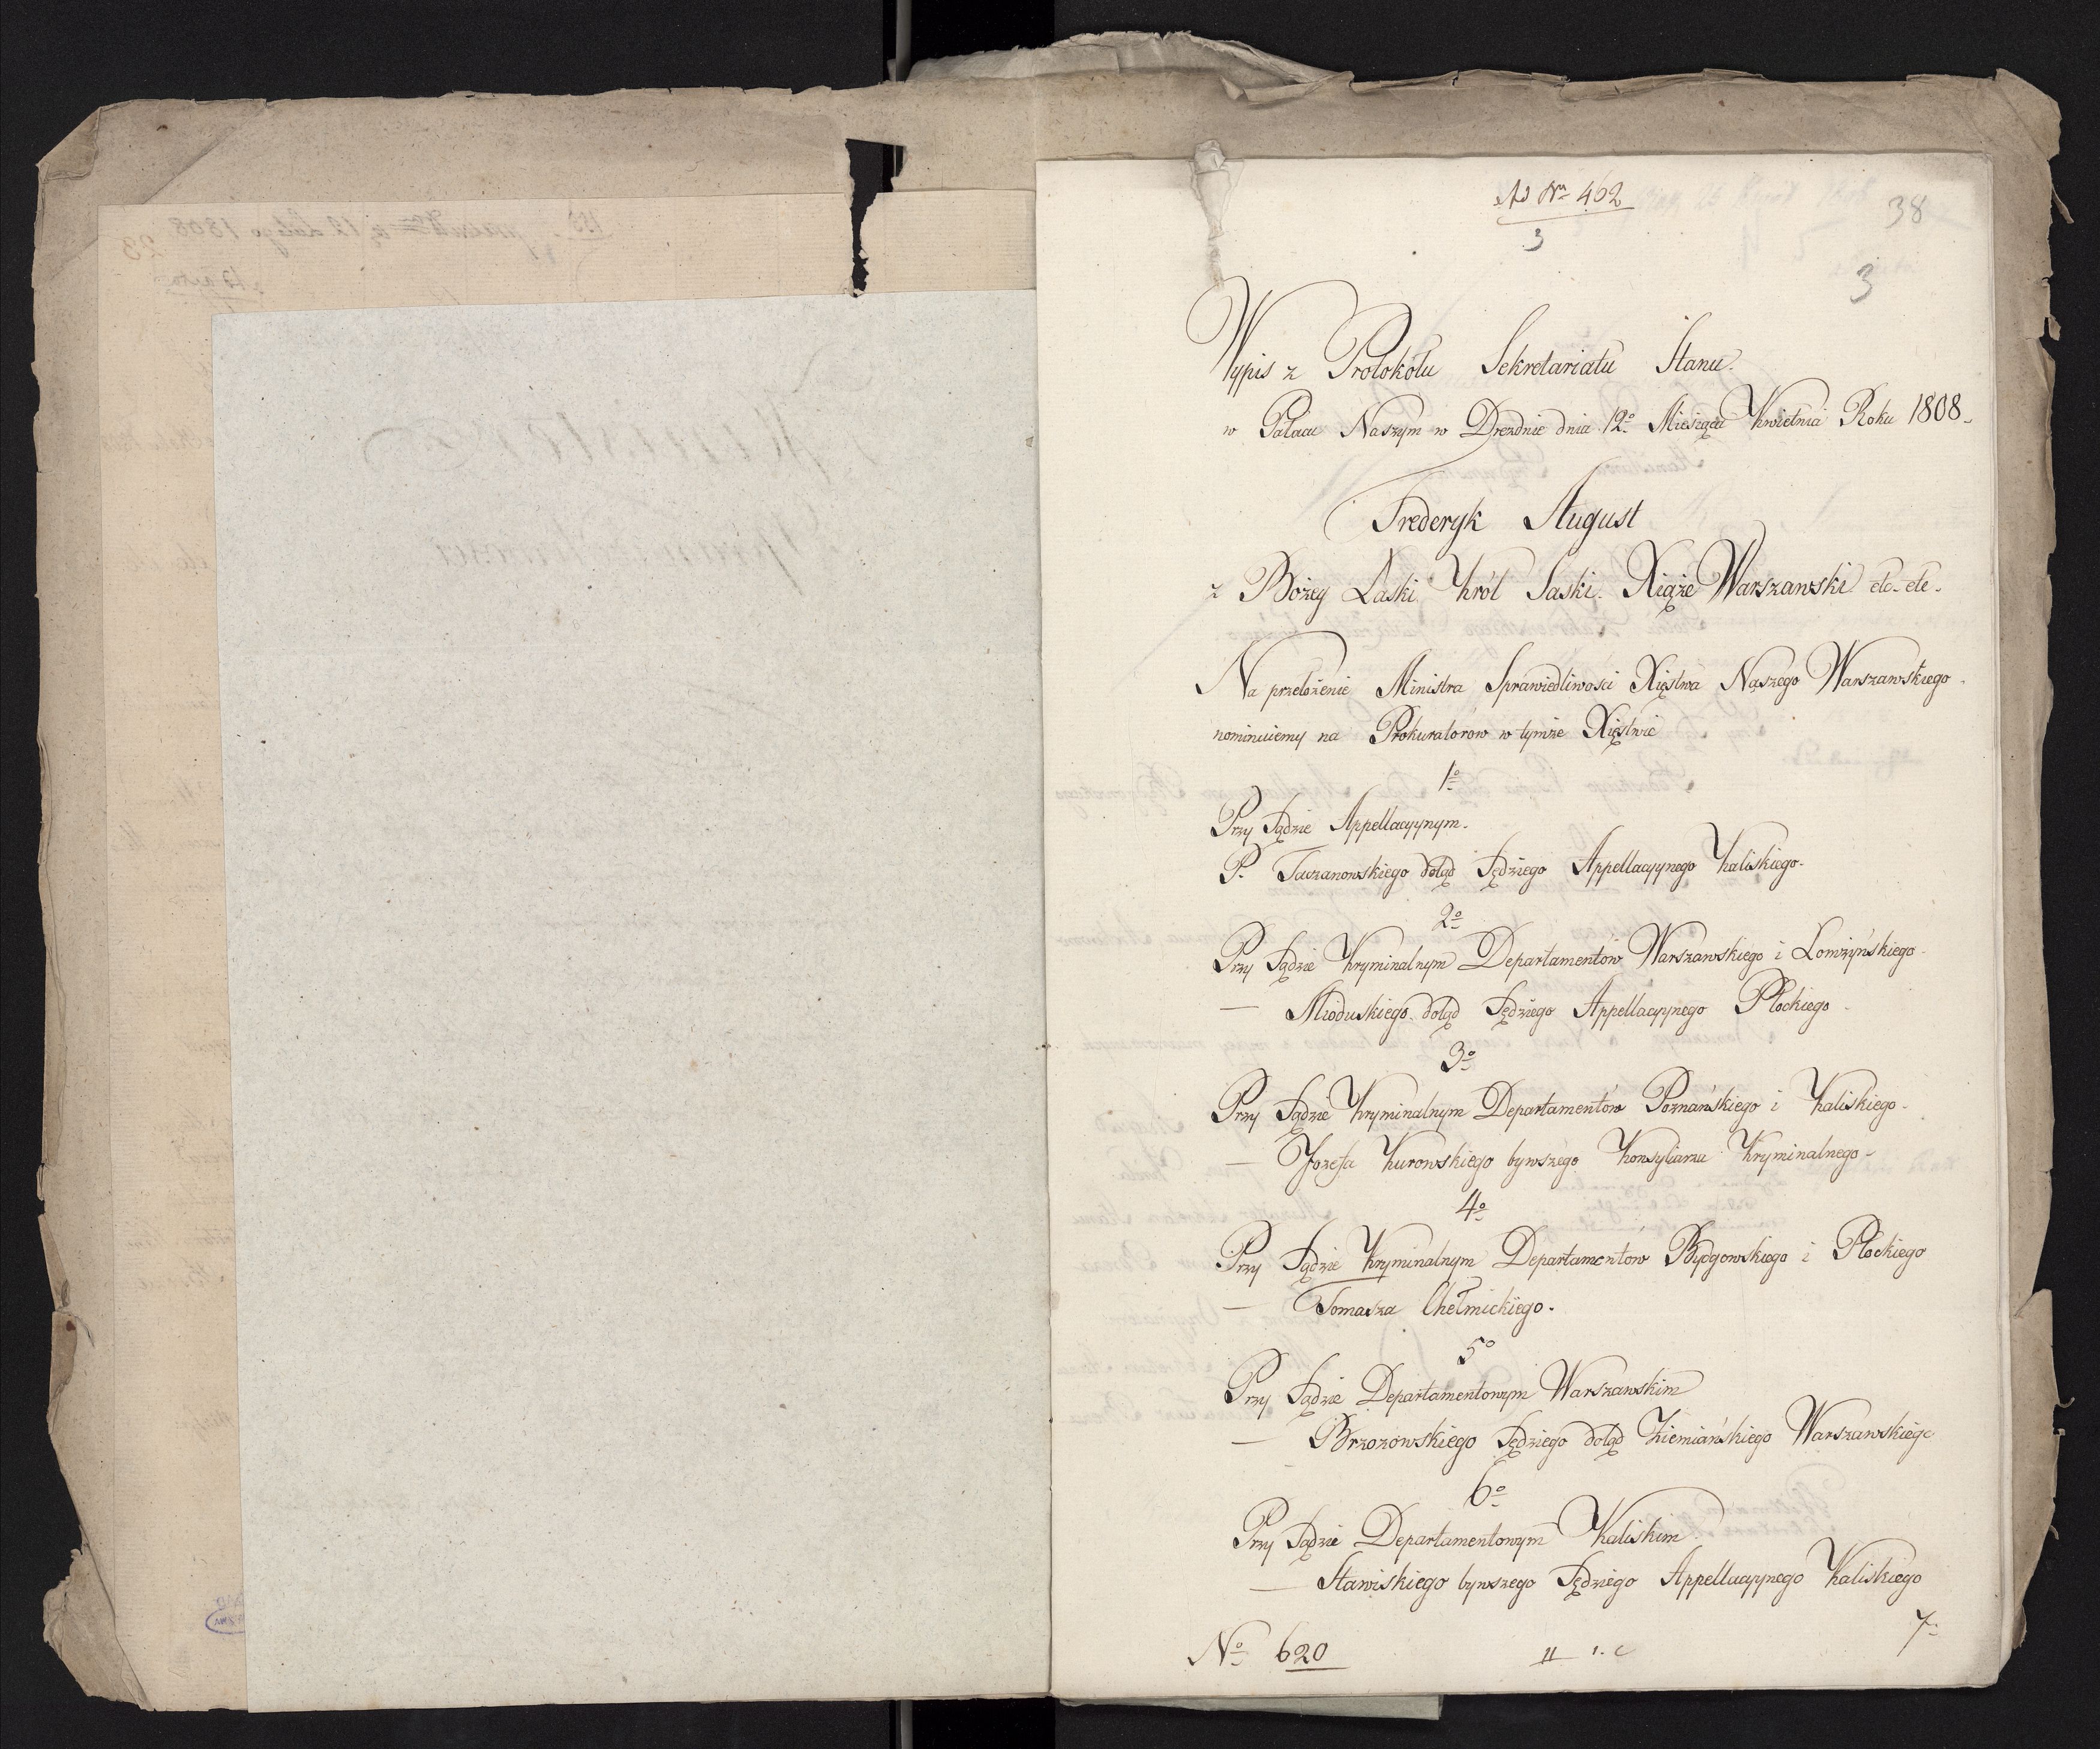 Ad Nrº 462
3
38
3
Wypis z Protokołu Sekretariatu Stanu.
w Pałacu Naszym w Dreznie dnia 12º Miesiąca Kwietnia Roku 1808.
Frederyk August
z Bożey Łaski Król Saski. Xiąże Warszawski etc. etc.
Na przełożenie Ministra Sprawiedliwości Xięstwa Naszego Warszawskiego
nominuiemy na Prokuratorow w tymże Xięstwie
1º
Przy Sądzie Appellacyynym.
P. Taczanowskiego dotąd Sędziego Appellacyynego Kaliskiego.
2º
Przy Sądzie Kryminalnym Departamentów Warszawskiego i Łomżyńskiego
— Mioduskiego dotąd Sędziego Appellacyynego Płockiego
3º
Przy Sądzie Kryminalnym Departamentów Poznańskiego i Kaliskiego.
— Jozefa Kurowskiego bywszego Konsyliarza Kryminalnego.
4º
Przy Sądzie Kryminalnym Departamentów Bydgowskiego i Płockiego
— Tomasza Chełmickiego.
5º
Przy Sądzie Departamentowym Warszawskim
— Brzozowskiego Sędziego dotąd Ziemiańskiego Warszawskiego
6º
Przy Sądzie Departamentowym Kaliskim
— Stawiskiego bywszego Sędziego Appellacyynego Kaliskiego
7º
Nº 620